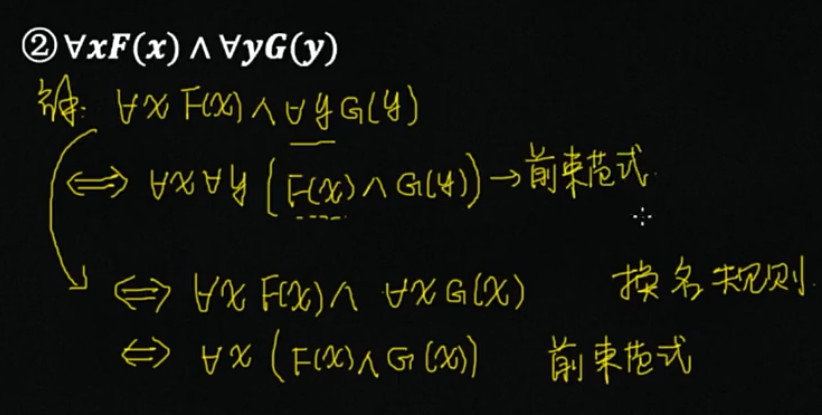 ②∀xF(x)∧∀yG(y)
解: ∀x F(x)∧∀y G(y)
⇔ ∀x∀y (F(x)∧G(y))→前束范式
⇔ ∀x F(x)∧ ∀x G(x) 换名规则.
⇔ ∀x (F(x)∧G(x)) 前束范式